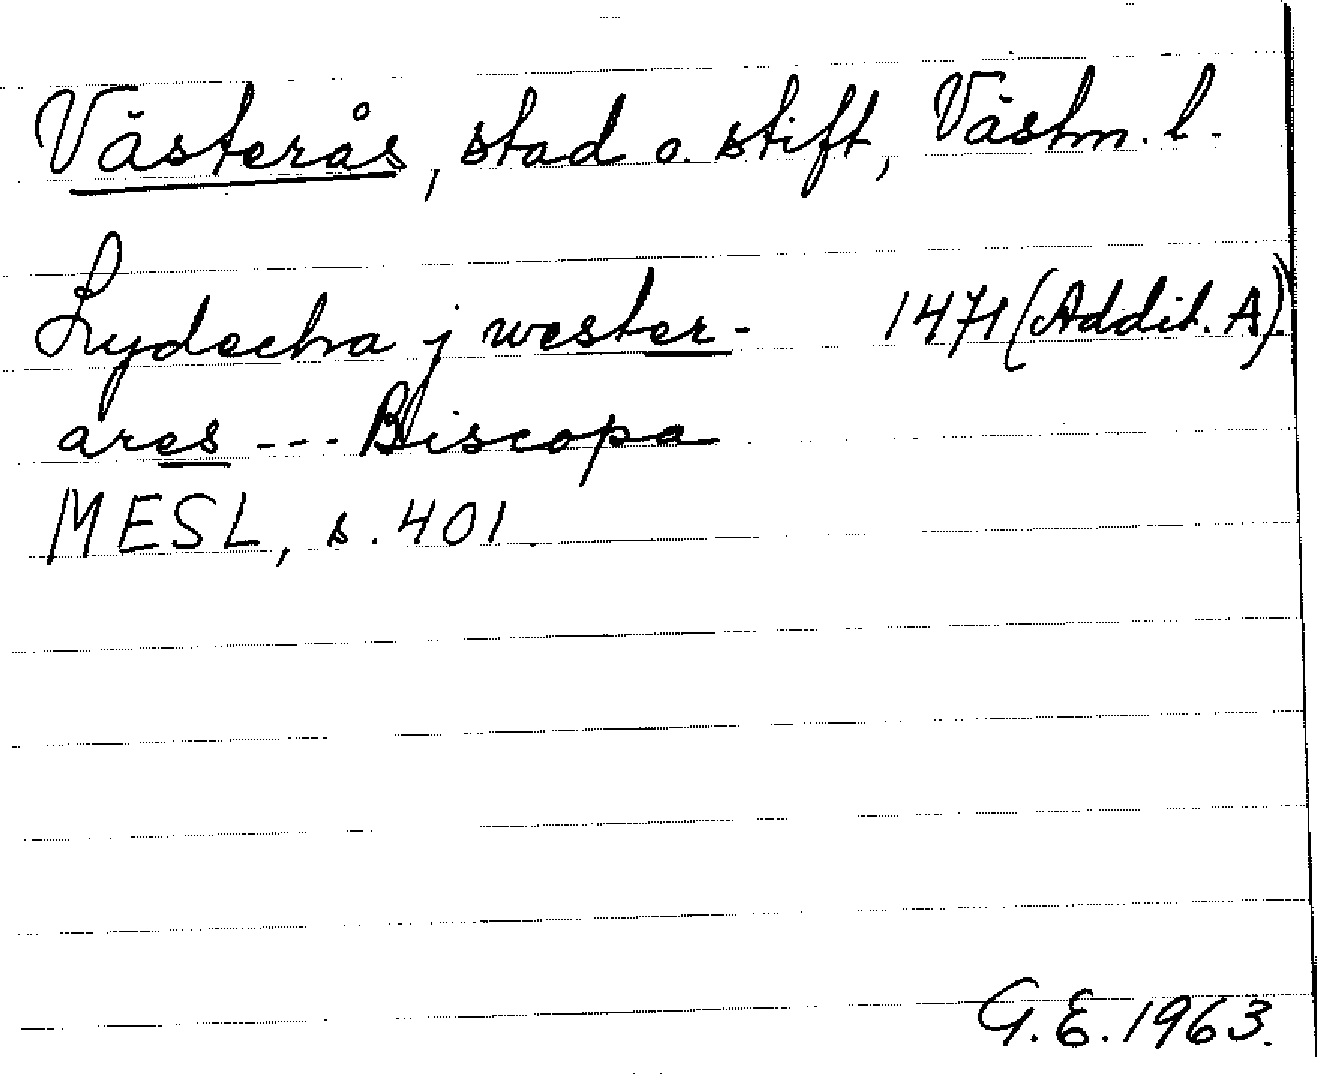 Västerås, stad o. stift, Västm. l.
Lydecha j wester- 1471 (Addit. A).
ares --- Biscopa
MESL, s. 401.
G. E. 1963.